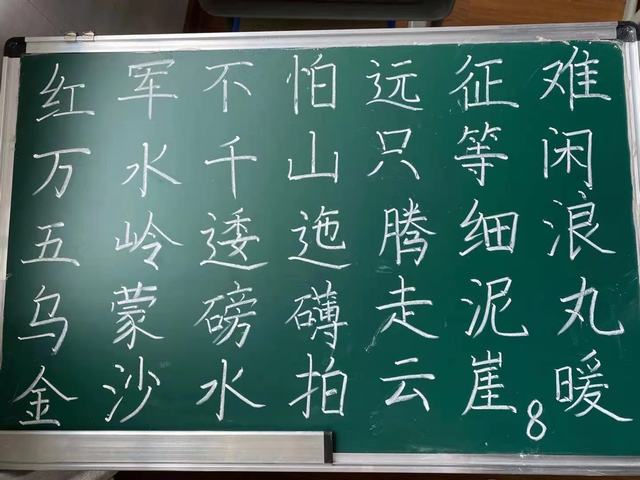 红军不怕远征难
万水千山只等闲
五岭逶迤腾细浪
乌蒙磅礴走泥丸
金沙水拍云崖暖
8